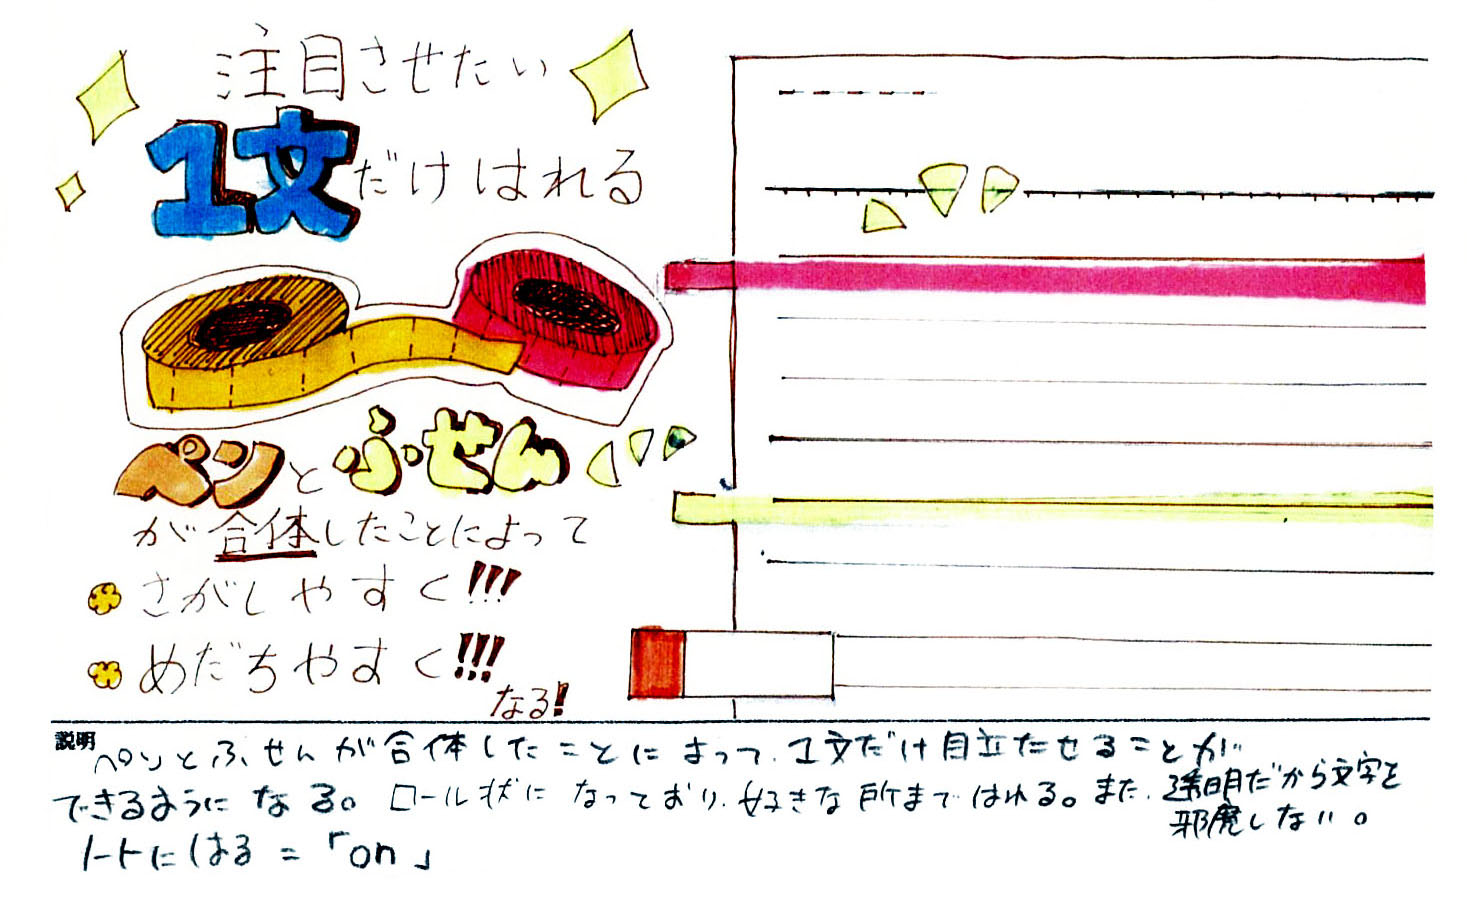 注目させたい
1文だけはれる
ペンとふせん
が合体したことによって
さがしやすく!!!
めだちやすく!!!
なる!
説明
ペンとふせんが合体したことによって、1文だけ目立たせることが
できるようになる。ロール状になっており、好きな所まではれる。また、透明だから文字を
邪魔しない。
ノートにはる=「on」